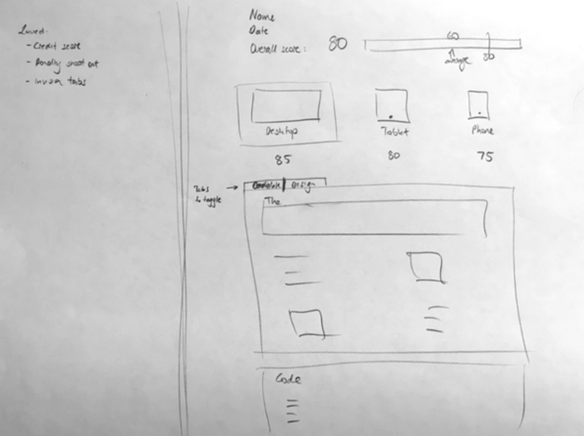 Loved:
- Credit score
- Penalty shoot out
- tabs
Name
Date
Overall score: 80
60
average
80
Desktop
Tablet
Phone
85
80
75
Tabs
to toggle
Design
The
Code